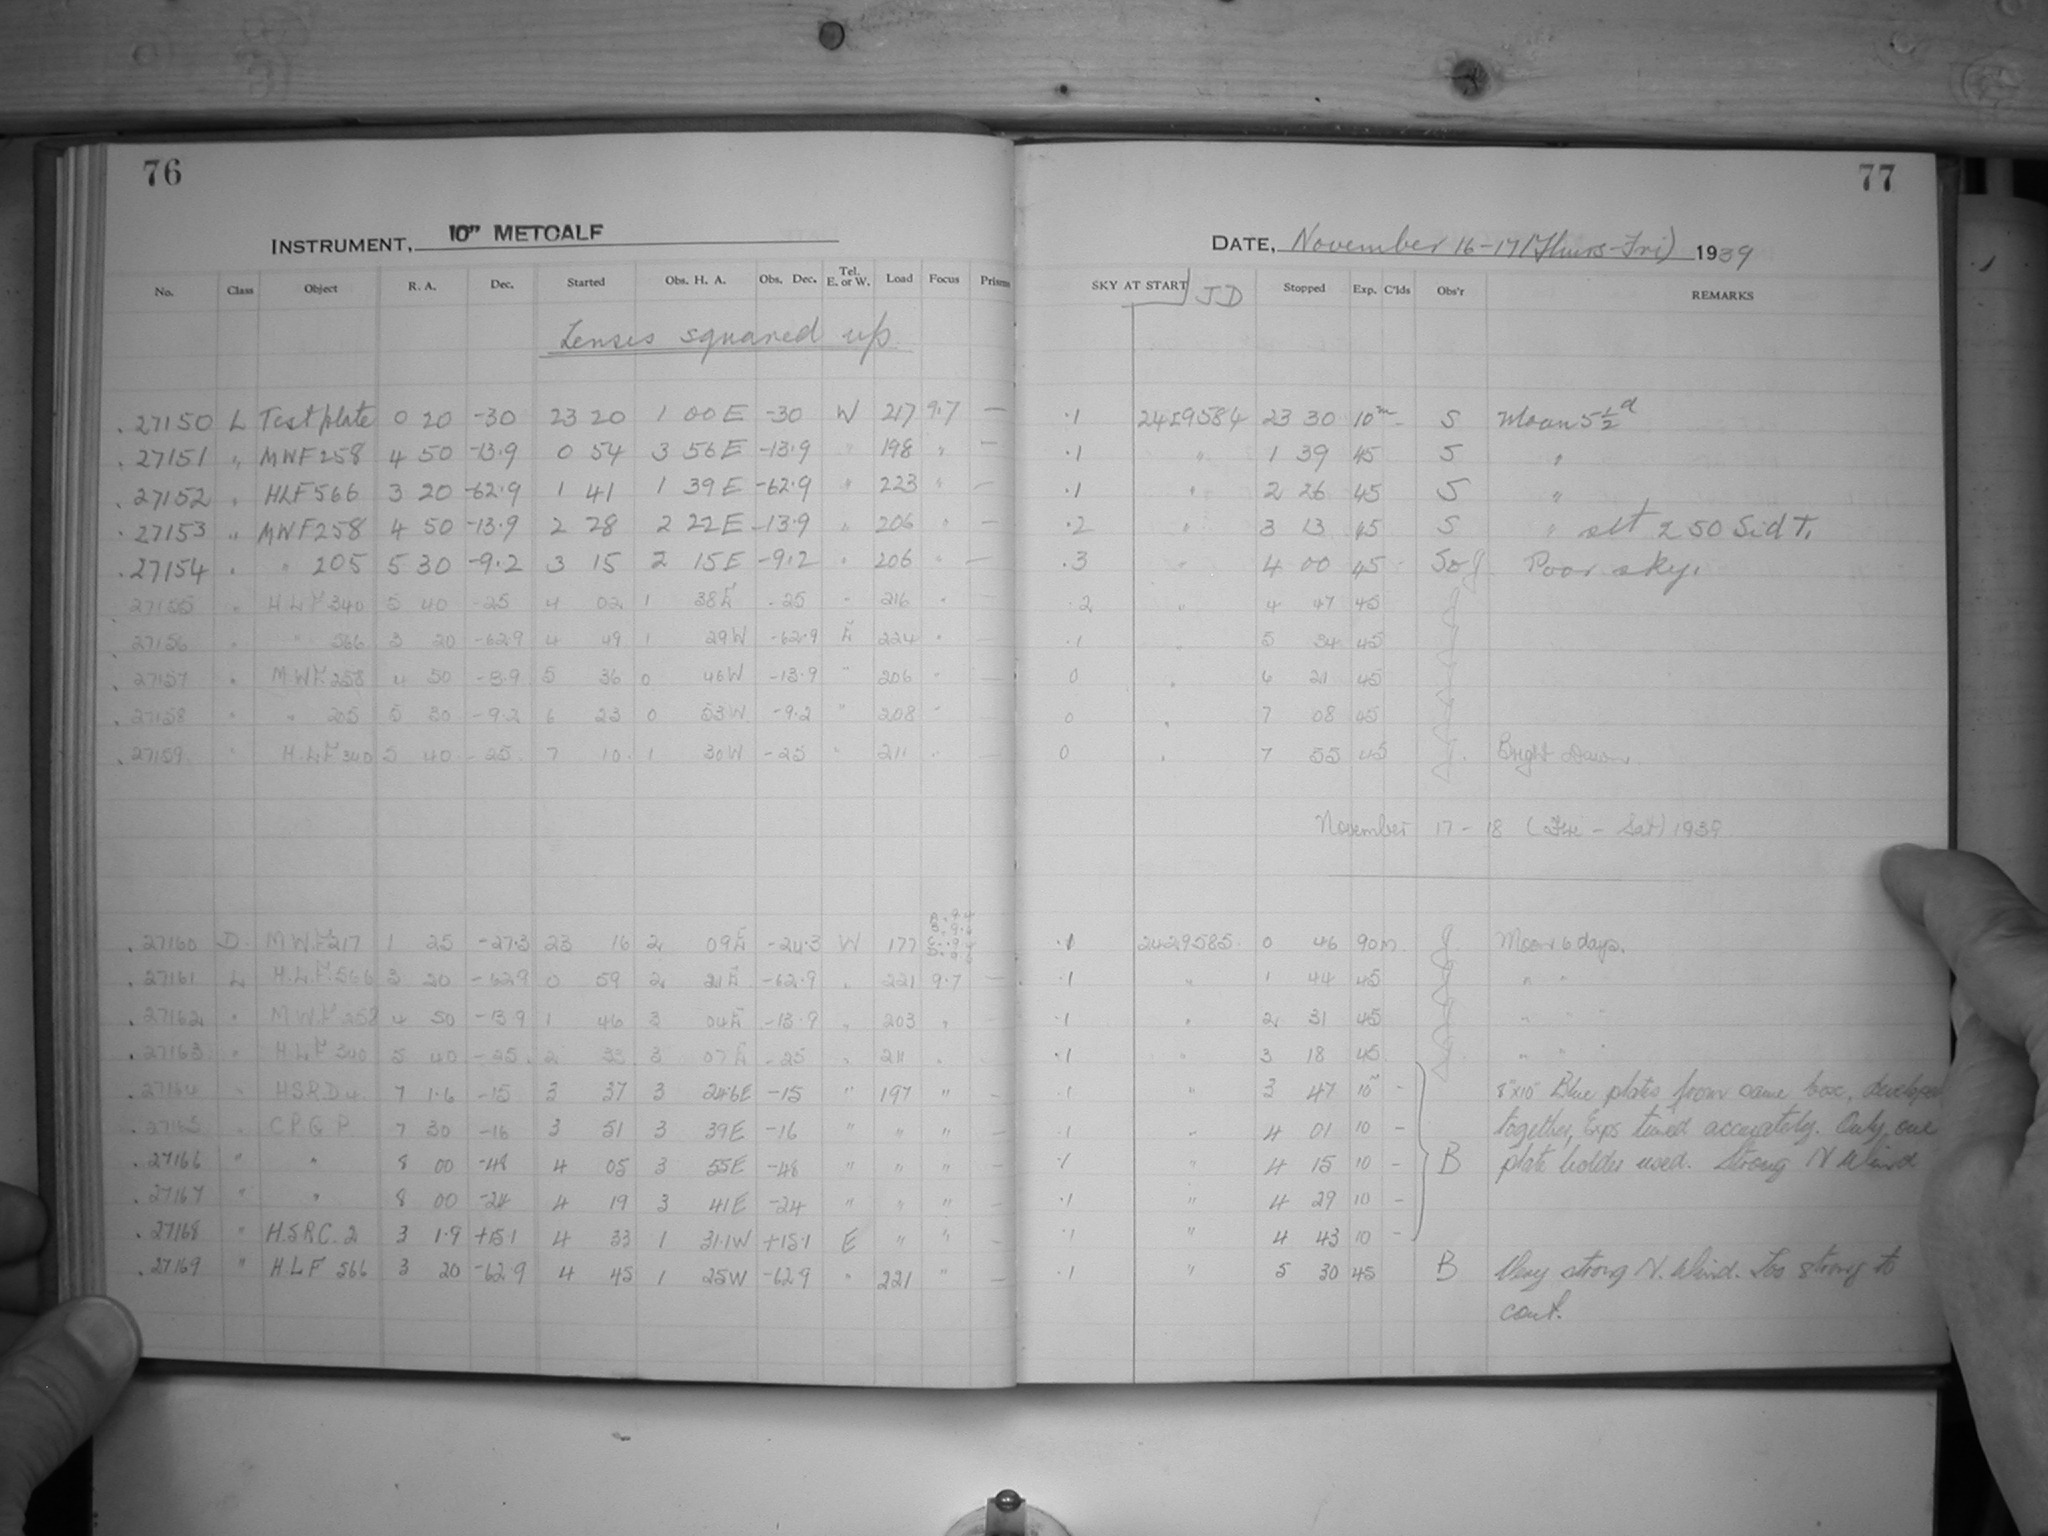 76
77
INSTRUMENT, 10" METCALF
DATE, November 16-17 (Thurs-Fri) 1939
No. Class Object R. A. Dec. Started Obs. H. A. Obs. Dec. Tel. E. or W. Load Focus Prisms SKY AT START JD Stopped Exp. C'lds Obs'r REMARKS
Lenses squared up
27150 L Test plate 0 20 -30 23 20 1 00 E -30 W 217 9.7 — .1 2429584 23 30 10m - S Moon 5½d
27151 " MWF 258 4 50 -13.9 0 54 3 56 E -13.9 " 198 " — .1 " 1 39 45 S "
27152 " HLF 566 3 20 -62.9 1 41 1 39 E -62.9 " 223 " — .1 " 2 26 45 S "
27153 " MWF 258 4 50 -13.9 2 28 2 22 E -13.9 " 206 " — .2 " 3 13 45 S " slt 2 50 Sid T.
27154 " " 205 5 30 -9.2 3 15 2 15 E -9.2 " 206 " — .3 " 4 00 45 S & J Poor sky.
27155 " H.L.F. 340 5 40 -25 4 02 1 38 E -25 " 216 " — .2 " 4 47 45 J
27156 " " 566 3 20 -62.9 4 49 1 29 W -62.9 E 224 " — .1 " 5 34 45 J
27157 " M.W.F. 258 4 50 -13.9 5 36 0 46 W -13.9 " 206 " — 0 " 6 21 45 J
27158 " " 205 5 30 -9.2 6 23 0 53 W -9.2 " 208 " — 0 " 7 08 45 J
27159 " H.L.F. 340 5 40 -25 7 10 1 30 W -25 " 211 " — 0 " 7 55 45 J. Bright Dawn.
November 17 - 18 (Fri - Sat) 1939
27160 D. M.W.F. 217 1 25 -27.3 23 16 2 09 E -24.3 W 177 .1 2429585. 0 46 90m. J. Moon 6 days.
27161 L H.L.F. 566 3 20 -62.9 0 59 2 21 E -62.9 " 221 9.7 — .1 " 1 44 45 J " "
27162 " M.W.F. 258 4 50 -13.9 1 46 3 04 E -13.9 " 203 " .1 " 2 31 45 J " " "
27163 " H.L.F. 340 5 40 -25. 2 33 3 07 E -25 " 211 " .1 " 3 18 45 J. " " "
27164 " HSRD 4 7 1.6 -15 3 37 3 24.6 E -15 " 197 " — .1 " 3 47 10m - 8"x10" Blue plates from same box, developed
27165 " C.P.G.P. 7 30 -16 3 51 3 39 E -16 " " " — .1 " 4 01 10 - together, Exps timed accurately. Only one
27166 " " 8 00 -48 4 05 3 55 E -48 " " " — .1 " 4 15 10 - B plate holder used. Strong N Wind
27167 " " 8 00 -24 4 19 3 41 E -24 " " " — .1 " 4 29 10 -
27168 " H.S.R.C. 2 3 1.9 +15.1 4 33 1 31.1 W +15.1 E " " — .1 " 4 43 10 -
27169 " H.L.F 566 3 20 -62.9 4 45 1 25 W -62.9 " 221 " — .1 " 5 30 45 B Very strong N. Wind. Too strong to
cont.